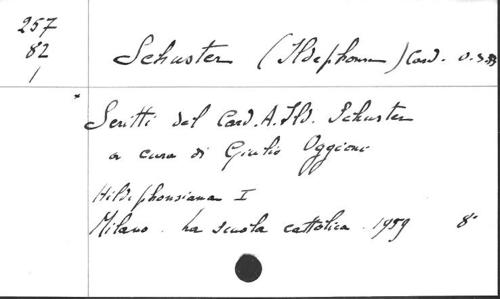 257
82
1
Schuster (Ildephonsus) Card. O.S.B.
* Scritti del Card. A. Ild. Schuster
a cura di Giulio Oggioni
Hildephonsiana I
Milano. La scuola cattolica. 1959 8°